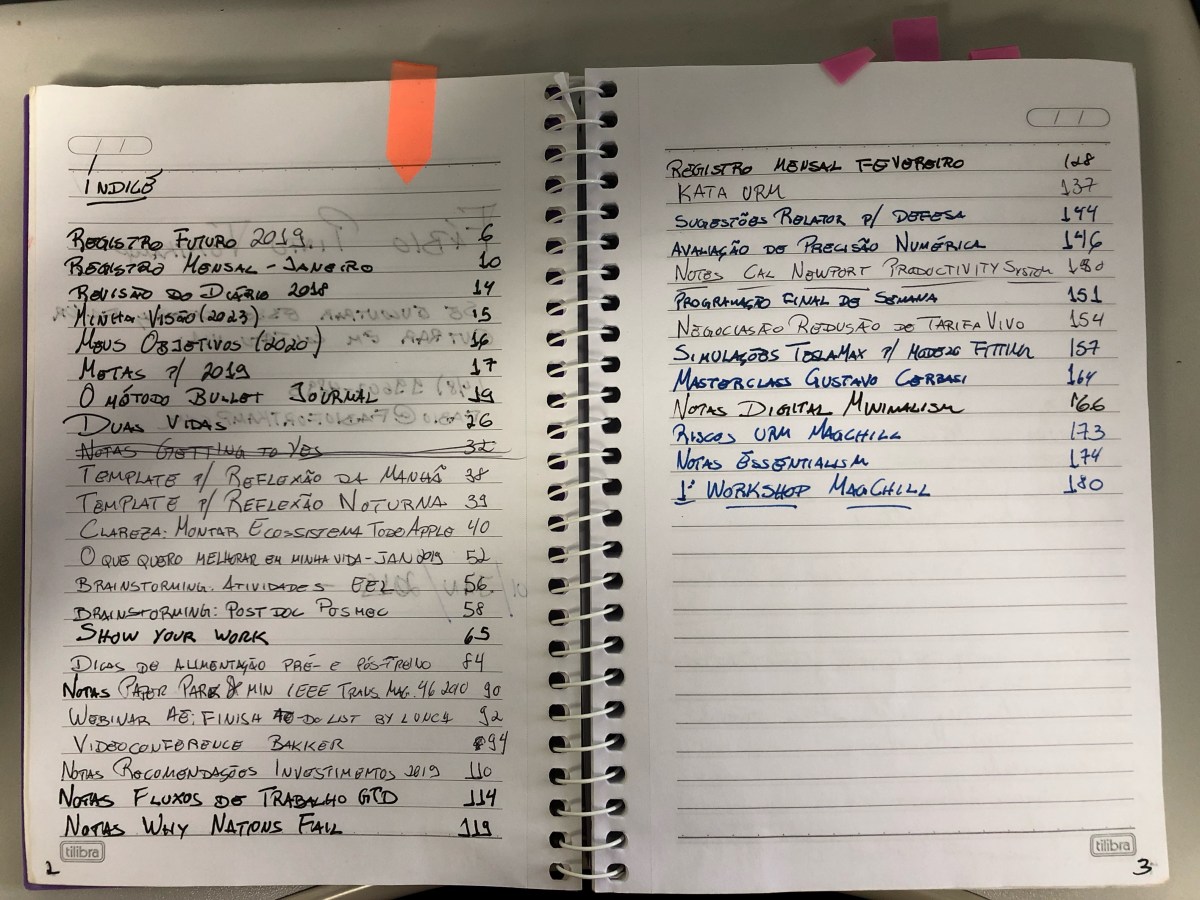 ÍNDICE
REGISTRO FUTURO 2019 6
REGISTRO MENSAL - JANEIRO 10
REVISÃO DO DIÁRIO 2018 14
MINHA VISÃO (2023) 15
MEUS OBJETIVOS (2020) 16
METAS P/ 2019 17
O MÉTODO BULLET JOURNAL 19
DUAS VIDAS 26
NOTAS GETTING TO YES 32
TEMPLATE P/ REFLEXÃO DA MANHÃ 38
TEMPLATE P/ REFLEXÃO NOTURNA 39
CLAREZA: MONTAR ECOSSISTEMA TODO APPLE 40
O QUE QUERO MELHORAR EM MINHA VIDA - JAN 2019 52
BRAINSTORMING: ATIVIDADES EEL 56
BRAINSTORMING: POST DOC POSMEC 58
SHOW YOUR WORK 65
DICAS DE ALIMENTAÇÃO PRÉ- E PÓS-TREINO 84
NOTAS PAPER PARK & MIN IEEE TRANS MAG. 46 2010 90
WEBINAR AE: FINISH TO-DO LIST BY LUNCH 92
VIDEOCONFERENCE BAKKER 94
NOTAS RECOMENDAÇÕES INVESTIMENTOS 2019 110
NOTAS FLUXOS DE TRABALHO GTD 114
NOTAS WHY NATIONS FAIL 119
tilibra
2
REGISTRO MENSAL FEVEREIRO 128
KATA URM 137
SUGESTÕES RELATOR P/ DEFESA 144
AVALIAÇÃO DE PRECISÃO NUMÉRICA 146
NOTES CAL NEWPORT PRODUCTIVITY SYSTEM
PROGRAMAÇÃO FINAL DE SEMANA 151
NEGOCIASÃO REDUSÃO DE TARIFA VIVO 154
SIMULAÇÕES TESLAMAX P/ MODELO FITTING 157
MASTERCLASS GUSTAVO CERBASI 164
NOTAS DIGITAL MINIMALISM 166
RISCOS URM MAGCHILL 173
NOTAS ESSENTIALISM 174
1º WORKSHOP MAGCHILL 180
tilibra
3